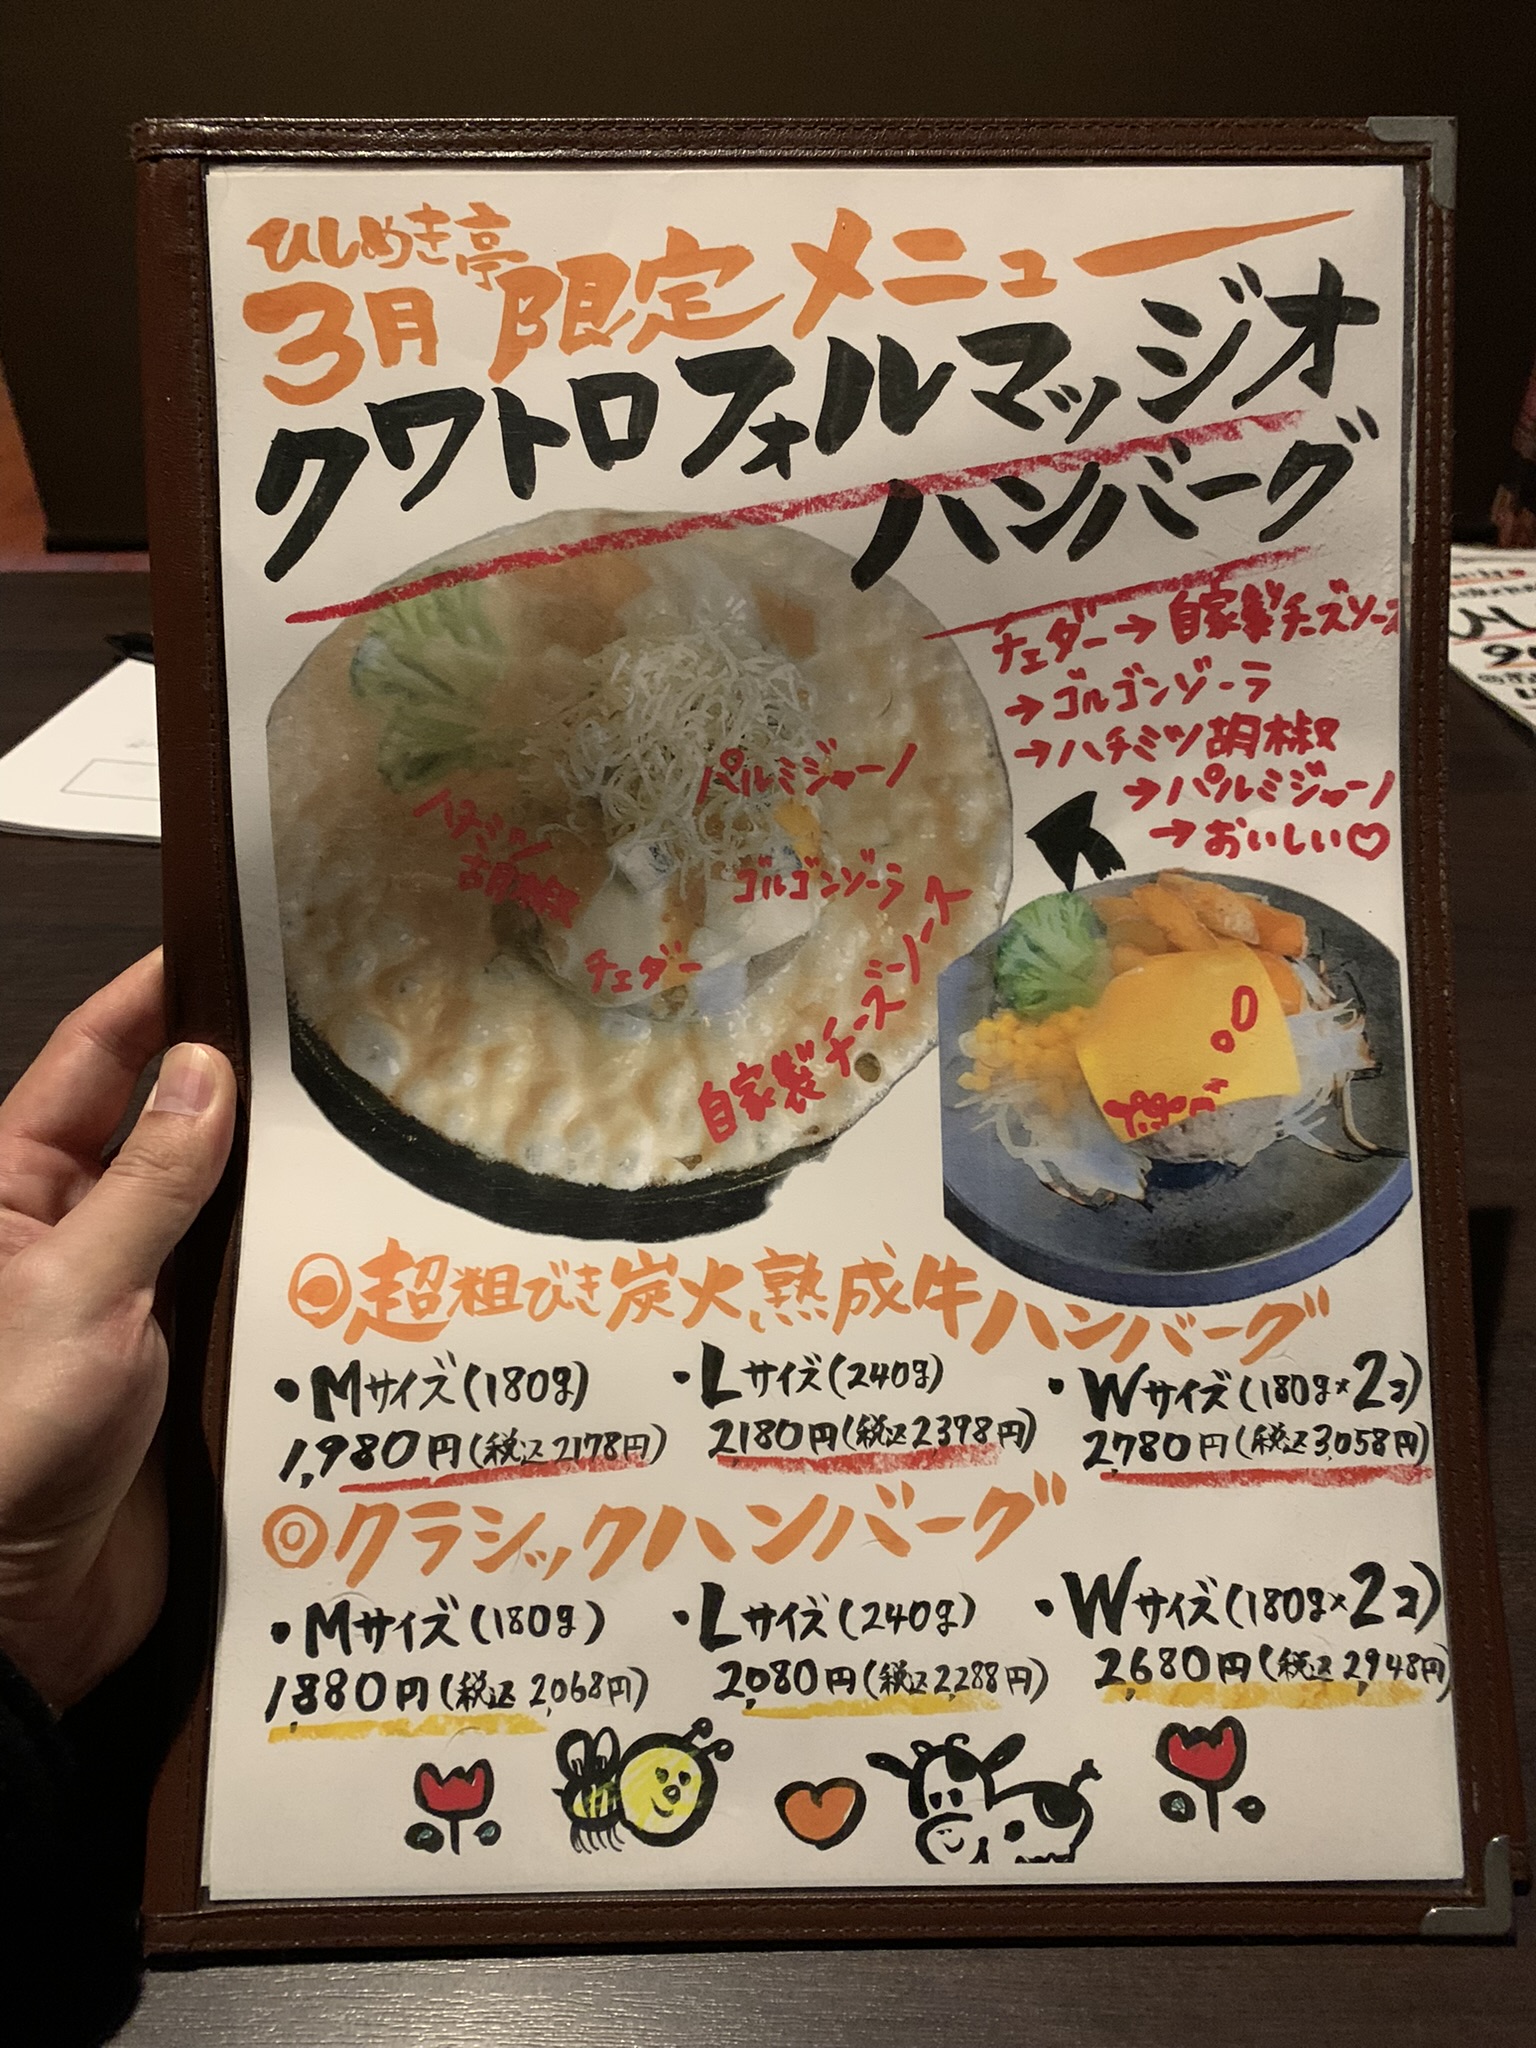 ひしめき亭
3月限定メニュー
クワトロフォルマッジオ
ハンバーグ
チェダー→自家製チーズソース
→ゴルゴンゾーラ
→ハチミツ胡椒
→パルミジャーノ
→おいしい♡
パルミジャーノ
ハチミツ
胡椒
ゴルゴンゾーラ
チェダー
自家製チーズソース
◎超粗びき炭火熟成牛ハンバーグ
・Mサイズ(180g)
1,980円(税込2178円)
・Lサイズ(240g)
2180円(税込2398円)
・Wサイズ(180g×2コ)
2,780円(税込3,058円)
◎クラシックハンバーグ
・Mサイズ(180g)
1,880円(税込2,068円)
・Lサイズ(240g)
2,080円(税込2,288円)
・Wサイズ(180g×2コ)
2,680円(税込2,948円)